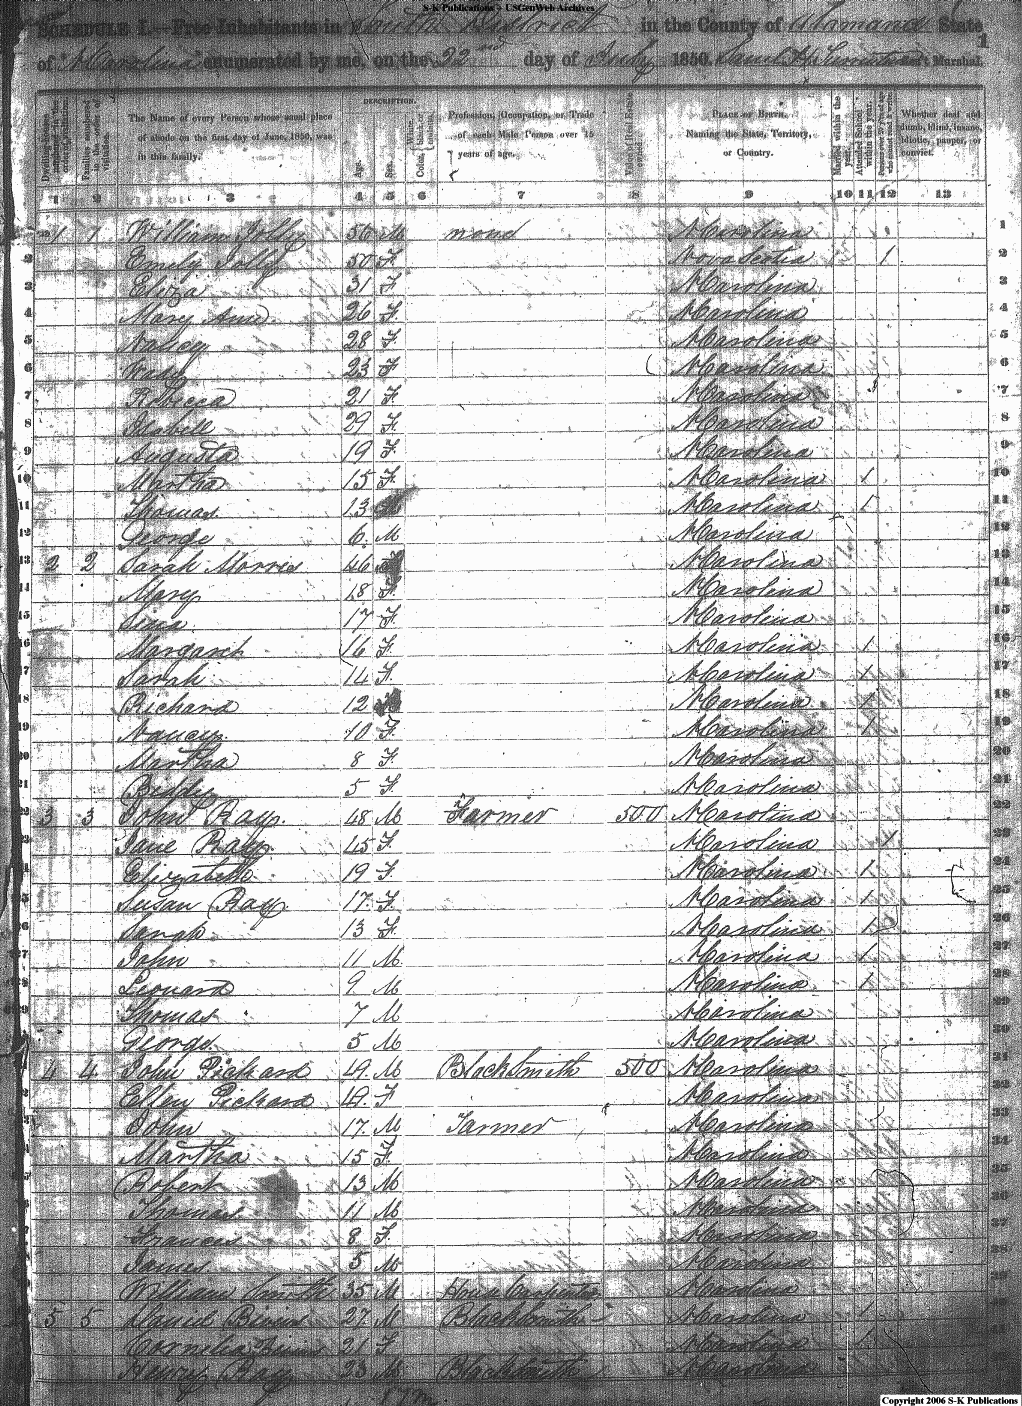 S-K Publications - USGenWeb Archives
SCHEDULE I.—Free Inhabitants in South District in the County of Alamance State
of N Carolina enumerated by me, on the 22nd day of July 1850. Ass't Marshal.
1
DESCRIPTION.
The Name of every Person whose usual place of abode on the first day of June, 1850, was in this family.
Age.
Sex.
Profession, Occupation, or Trade of each Male Person over 15 years of age.
Value of Real Estate owned.
PLACE OF BIRTH. Naming the State, Territory, or Country.
Married within the year.
Attended School within the year.
Whether deaf and dumb, blind, insane, idiotic, pauper, or convict.
1 2 3 4 5 6 7 8 9 10 11 12 13
1 1 William Jolly 56 M N Carolina 1
2 Emily Jolly 50 F Nova Scotia 1 2
3 Eliza 31 F N Carolina 3
4 Mary Ann 26 F N Carolina 4
5 Nancy 28 F N Carolina 5
6 23 F N Carolina 6
7 Rebecca 21 F N Carolina 7
8 Isabell 29 F N Carolina 8
9 Augusta 19 F N Carolina 9
10 Martha 15 F N Carolina 1 10
11 Thomas 13 N Carolina 1 11
12 George 6 M N Carolina 12
13 2 2 Sarah Morris 46 N Carolina 13
14 Mary 18 F N Carolina 14
15 17 F N Carolina 15
16 Margaret 16 F N Carolina 1 16
17 Sarah 14 F N Carolina 1 17
18 Richard 12 N Carolina 1 18
19 Nancy 10 F N Carolina 1 19
20 Martha 8 F N Carolina 20
21 Biddy 5 F N Carolina 21
22 3 3 John Ray 48 M Farmer 500 N Carolina 22
Jane Ray 45 F N Carolina 1 23
Elizabeth 19 F N Carolina 1 24
Susan Ray 17 F N Carolina 1 25
Sarah 13 F N Carolina 1 26
John 11 M N Carolina 1 27
Leonard 9 M N Carolina 1 28
Thomas 7 M N Carolina 29
George 5 M N Carolina 30
4 4 John Pickard 49 M BlackSmith 500 N Carolina 31
Ellen Pickard 49 F N Carolina 32
John 17 M Farmer N Carolina 33
Martha 15 F N Carolina 34
Robert 13 M N Carolina 35
Thomas 11 M N Carolina 36
Francis 8 F N Carolina 37
James 5 M N Carolina 38
William Smith 35 M House Carpenter N Carolina
5 5 David 27 M BlackSmith N Carolina 1
Cornelia 21 F N Carolina 1
Henry Ray 23 M BlackSmith N Carolina
Copyright 2006 S-K Publications